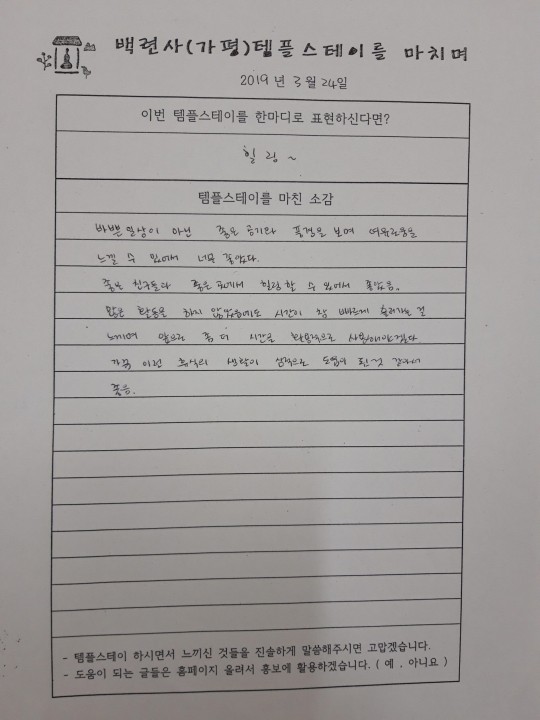 백련사(가평)템플스테이를 마치며
2019년 3월 24일
이번 템플스테이를 한마디로 표현하신다면?
힐링~
템플스테이를 마친 소감
바쁜 일상이 아닌 좋은 공기와 풍경을 보며 여유로움을
느낄 수 있어서 너무 좋았다.
좋은 친구들과 좋은 곳에서 힐링할 수 있어서 좋았음.
많은 활동을 하지 않았음에도 시간이 참 빠르게 흘러가는 걸
느끼며 앞으로 좀 더 시간을 효율적으로 사용해야겠다
가끔 이런 휴식의 생활이 심적으로 도움이 된 것 같아서
좋음.
- 템플스테이 하시면서 느끼신 것들을 진솔하게 말씀해주시면 고맙겠습니다.
- 도움이 되는 글들은 홈페이지 올려서 홍보에 활용하겠습니다. ( 예 , 아니요 )